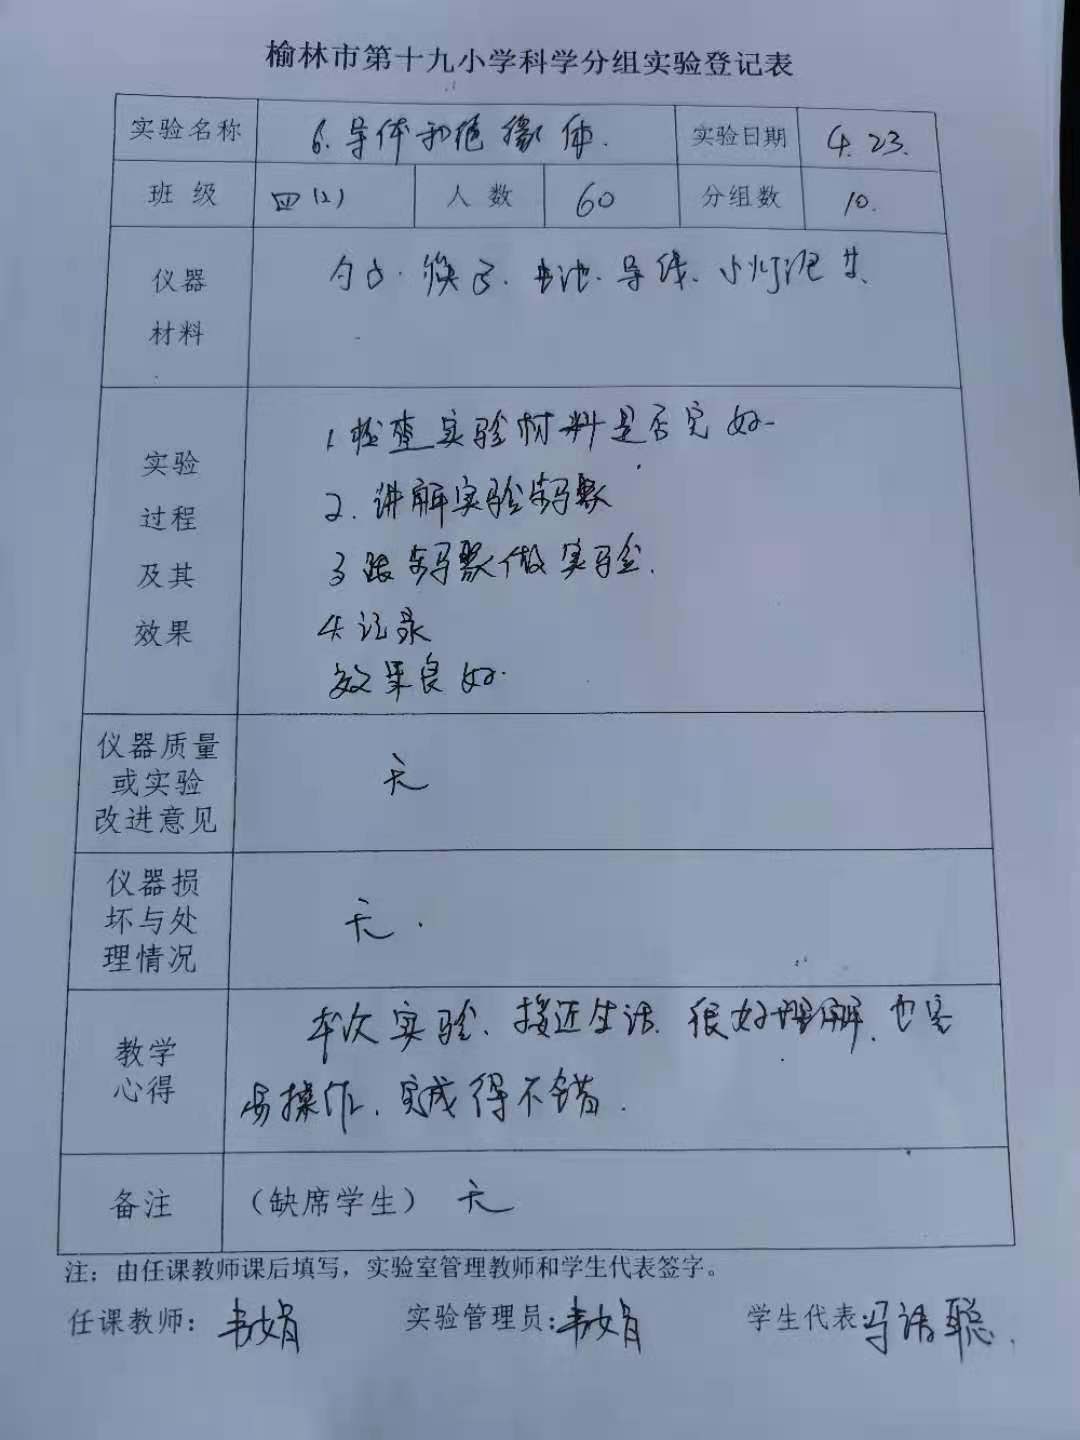 榆林市第十九小学科学分组实验登记表
实验名称 6.导体和绝缘体. 实验日期 4.23.
班级 四(2) 人数 60 分组数 10.
仪器
材料
勺子.筷子.电池.导线.小灯泡等
实验
过程
及其
效果
1.检查实验材料是否完好.
2.讲解实验步骤
3跟步骤做实验.
4.记录
效果良好.
仪器质量
或实验
改进意见
无
仪器损
坏与处
理情况
无.
教学
心得
本次实验、接近生活.很好理解.也容
易操作.完成得不错.
备注 (缺席学生) 无
注：由任课教师课后填写，实验室管理教师和学生代表签字。
任课教师：韦娟 实验管理员：韦娟 学生代表 冯 聪.